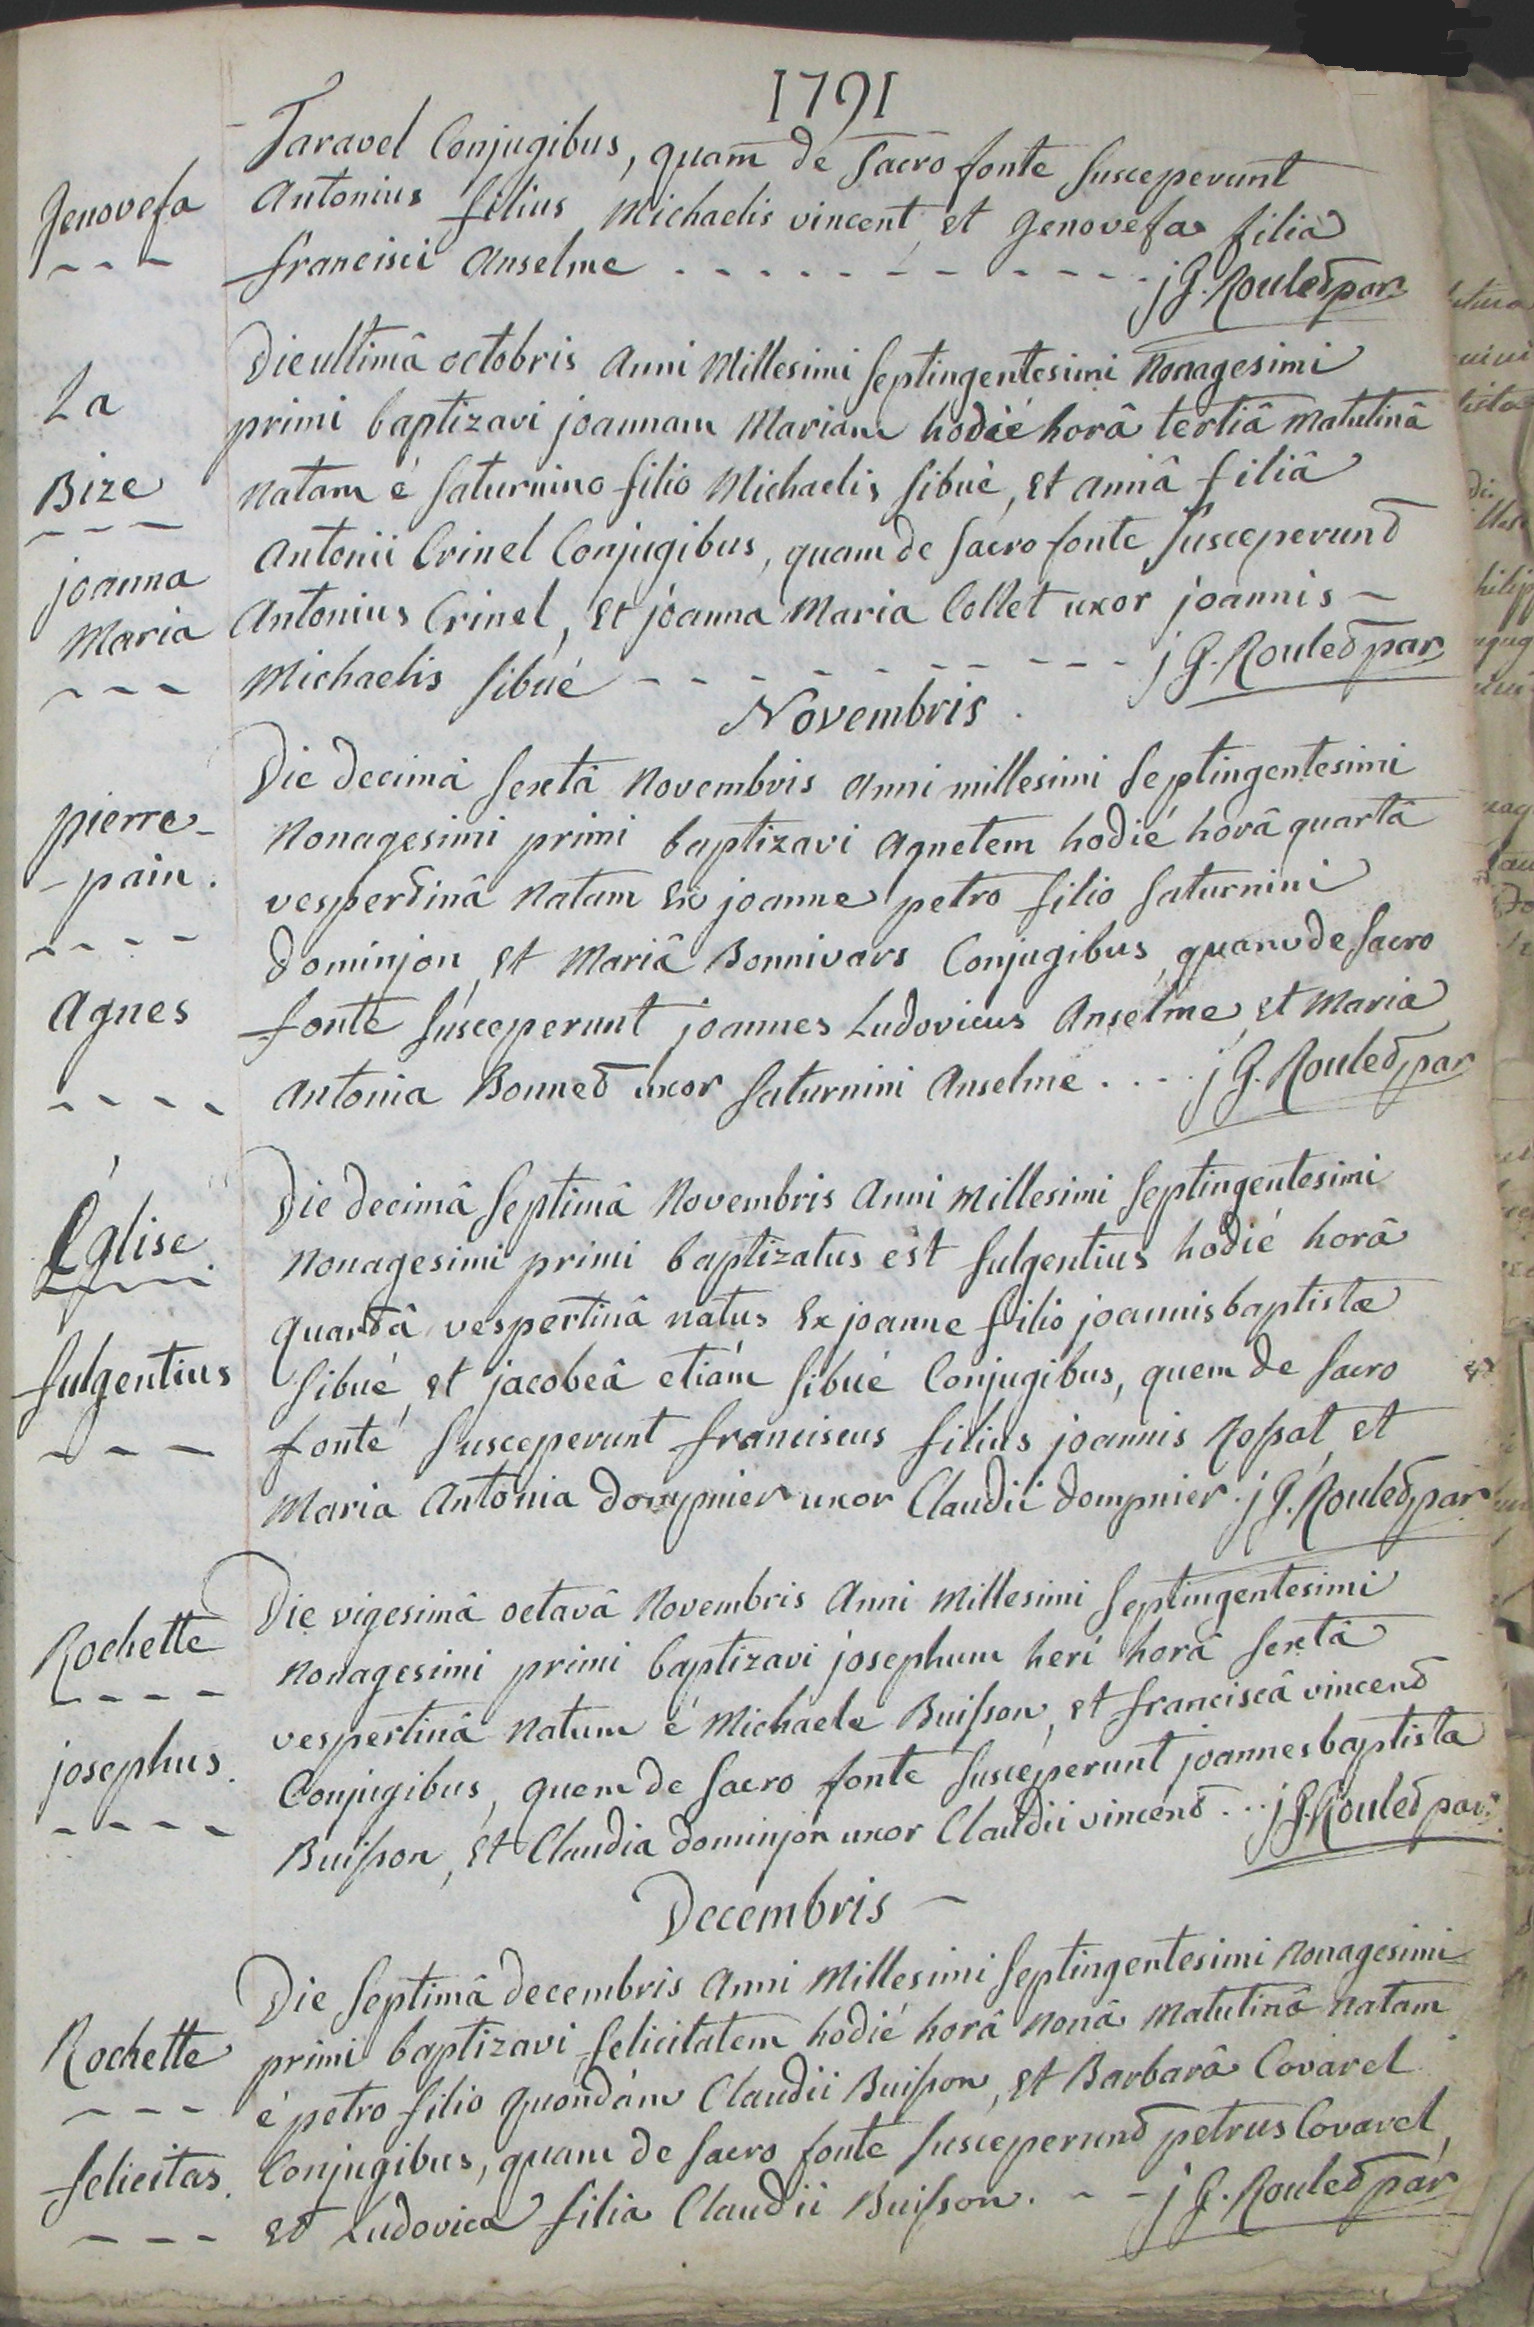 1791
Taravel Conjugibus, quam de Sacro fonte Susceperunt
Genovefa
Antonius filius Michaelis vincent, et genovefa filia
francisci Anselme - - - - - - - - - - - j G. Rouled par
Die ultimâ octobris Anni Millesimi Septingentesimi Nonagesimi
La
primi baptizavi joannam Mariam hodié horâ tertiâ Matutinâ
Bize
Natam é Saturnino filio Michaelis Sibué, et annâ filiâ
Antonii Crinel Conjugibus, quam de Sacro fonte Susceperund
joanna
Maria
Antonius Crinel, et joanna Maria Collet uxor joannis -
Michaelis Sibué - - - - - - - - - j G. Rouled par
Novembris.
Die decimâ Sextâ Novembris Anni millesimi Septingentesimi
pierre-
Nonagesimi primi baptizavi Agnetem hodié horâ quartâ
-pain.
vesperdinâ Natam ex joanne petro filio Saturnini
dominjon, et Mariâ Bonnivars Conjugibus, quam de Sacro
Agnes
fonte Susceperunt joannes Ludovicus Anselme, et Maria
Antonia Bonned uxor Saturnini Anselme . . . . j G. Rouled, par
Die decimâ Septimâ Novembris Anni Millesimi Septingentesimi
Église.
Nonagesimi primi baptizatus est fulgentius hodié horâ
quardâ vespertinâ natus ex joanne filio joannisbaptistæ
fulgentius
Sibué, et jacobeâ etiám Sibué Conjugibus, quem de Sacro
fonté Susceperunt franciscus filius joannis Rossat, et
Maria Antonia dompnier uxor Claudii dompnier. j G. Rouled, par
Die vigesimâ octavâ Novembris Anni Millesimi Septingentesimi
Rochette
Nonagesimi primi baptizavi josephum heri horâ Sextâ
vespertinâ Natum é Michaele Buisson, et franciscâ vincend
josephus.
Conjugibus, quem de Sacro fonte Susceperunt joannesbaptista
Buisson, et Claudia dominjon uxor Claudii vincend . . . j G. Rouled par.
Decembris -
Die Septimâ decembris Anni Millesimi Septingentesimi Nonagesimi
Rochette
primi baptizavi felicitatem hodié horâ Nonâ Matutinâ Natam
é petro filio quondám Claudii Buisson, et Barbarâ Covarel
felicitas.
Conjugibus, quam de Sacro fonte Susceperund petrus Covarel,
et Ludovica filia Claudii Buisson. - - j G. Rouled par